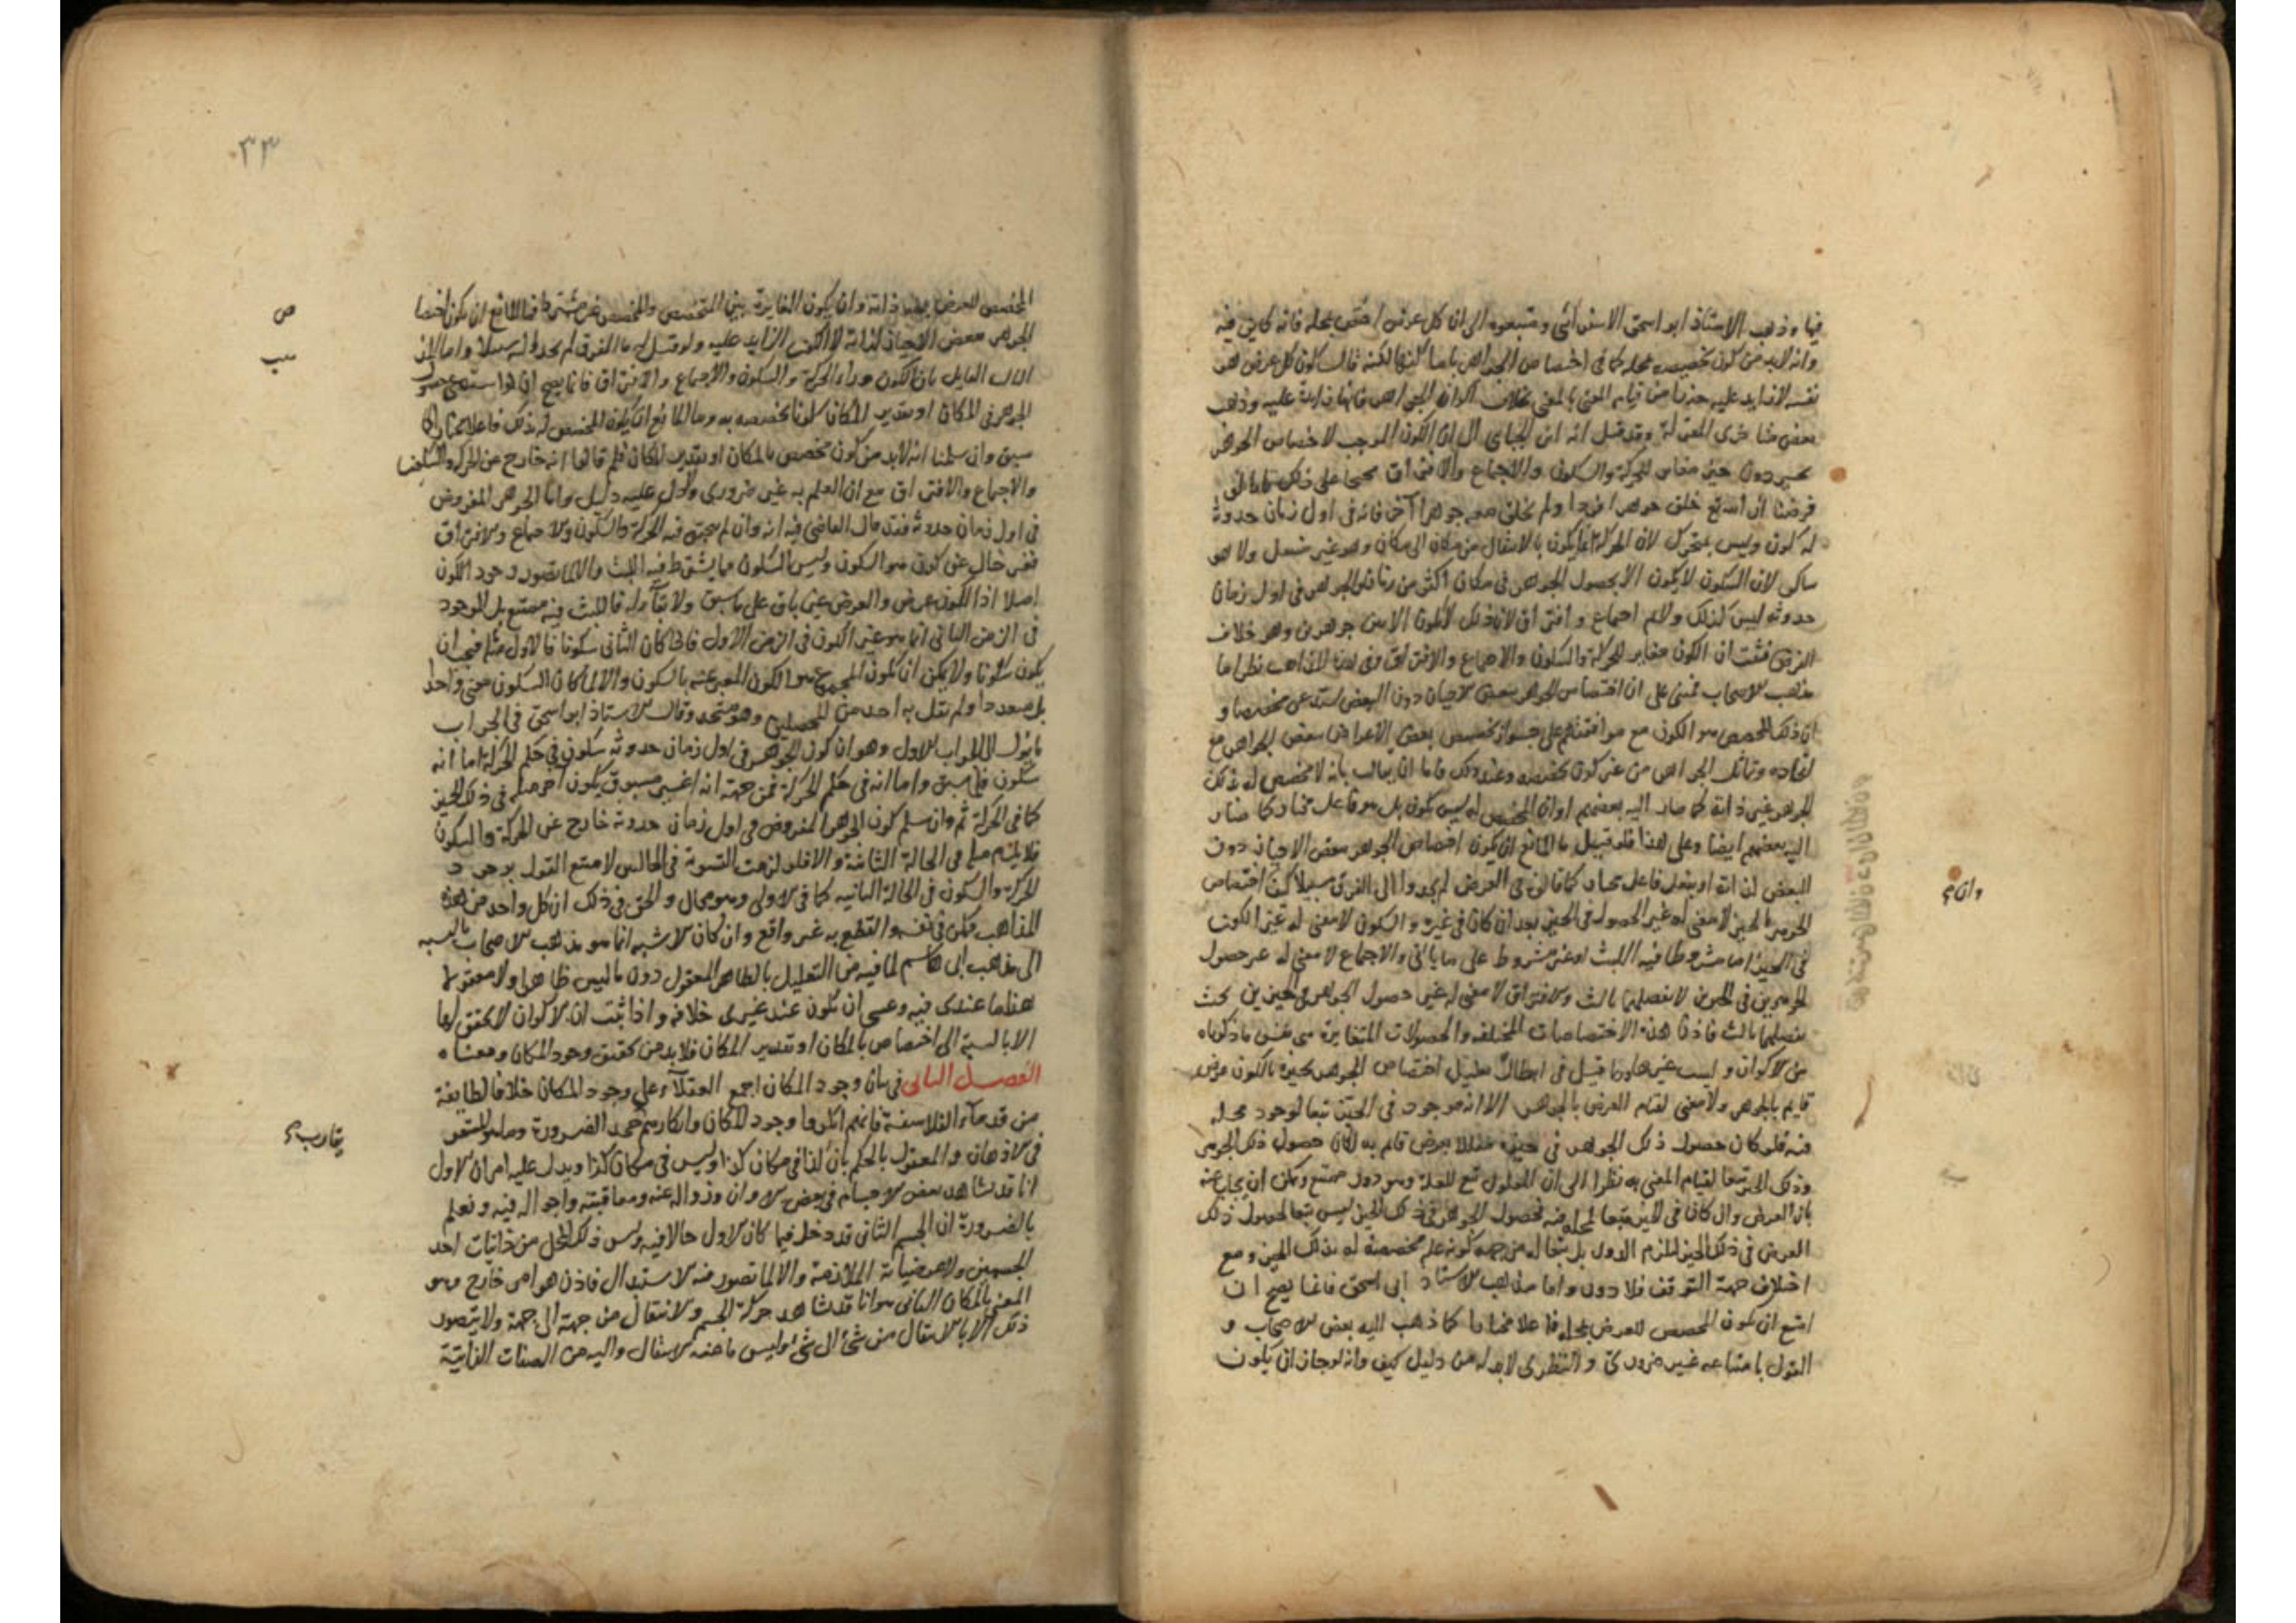 فيها وذهب الاستاذ ابو اسحق الاسفرائنى ومتبعوه الى ان كل عرض اختص بمحله فانه كاين فيه
وانه لابد من كون تخصيصه بمحله كما فى اختصاص الجواهر باماكنها لكنه قال كون كل عرض هو
نفسه لا زايد عليه حذرا من قيام المعنى بالمعنى بخلاف اكوان الجواهر فانها زايدة عليه وذهب
بعض متاخرى المعتزلة وقد قيل انه ابن الجباى الى ان الكون الموجب لاختصاص الجوهر
بحيز دون حيز مغاير للحركة والسكون والاجتماع والافتراق محتجا على ذلك بانا لو
فرضنا ان الله تع خلق جوهرا فردا ولم يخلق معه جوهرا آخر فانه فى اول زمان حدوثه
له كون وليس بمتحرك لان الحركة انما يكون بالانتقال من مكان الى مكان وهو غير منتقل ولا هو
ساكن لان السكون لا يكون الا بحصول الجوهر فى مكان اكثر من زمان والجوهر فى اول زمان
حدوثه ليس كذلك ولا ثم اجتماع وافتراق لان ذلك لا يكون الا بين جوهرين وهو خلاف
الفرض فثبت ان الكون مغاير للحركة والسكون والاجتماع والافتراق وفى هذه المذاهب نظر اما
مذهب الاصحاب فمبنى على ان اختصاص الجوهر ببعض الاحيان دون البعض عن مخصص و
ان ذلك المخصص هو الكون مع موافقتهم على جواز تخصيص بعض الاعراض ببعض الجواهر مع
اتحاده وتماثل الجواهر من غير كون يخصصه وعند ذلك فاما ان يقال بانه لا مخصص له بذلك
الجوهر غير ذاته كما صار اليه بعضهم او ان المخصص له ليس بكون بل هو فاعل مختار كما صار
اليه بعضهم ايضا وعلى هذا فلو قيل ما المانع ان يكون اختصاص الجوهر ببعض الاحيان دون
البعض لذاته او بفعل فاعل مختار كما قالوه فى العرض لم يجدوا الى الفرق سبيلا كيف واختصاص
الجوهر بالحيز لا معنى له غير الحصول فى الحيز بعد ان كان فى غيره والسكون لا معنى له غير الكون
فى الحيز اما مشروطا فيه اللبث او غير مشروط على ما ياتى والاجتماع لا معنى له غير حصول
الجوهرين فى الحيزين لا يفصلهما ثالث والافتراق لا معنى له غير حصول الجوهرين فى الحيزين بحيث
يفصلهما ثالث فاذن هذه الاختصاصات المختلفه والحصولات المتغايرة هى نفس ما ذكرناه
من الاكوان وليست غيرها وما قيل فى ابطال تعليل اختصاص الجوهر بحيزه بالكون عرض
قايم بالجوهر ولا معنى لقيام العرض بالجوهر الا انه موجود فى الحيز تبعا لوجود محله
فيه فلو كان حصول ذلك الجوهر فى حيزه معللا بعرض قايم به لكان حصول ذلك الجوهر
وذلك الحيز تبعا لقيام المعنى به نظرا الى ان المعلول تبع للعلة وهو دور ممتنع ويمكن ان يجاب عنه
بان العرض وان كان فى الحيز تبعا لمحله فيه فحصول الجوهر فى ذلك الحيز ليس تبعا لحصول ذلك
العرض فى ذلك الحيز ليلزم الدور بل تبعا له من جهة كونه علم مخصصة له بذلك الحيز ومع
اختلاف جهة التوقف فلا دور واما مذهب الاستاد ابى اسحق فانما يصح ان
امتنع ان يكون المخصص للعرض بمحله فاعلا مختارا كما ذهب اليه بعض الاصحاب و
القول بامتناعه غير ضرورى والنظرى لابد له من دليل كيف وانه لو جاز ان يكون
وان
٣٣
المخصص للعرض بمحله ذاته وان يكون المغايرة بين المتخصص والمخصص غير مشترط فما المانع ان يكون اختصا
الجوهر ببعض الاحياز لذاته لا لكون الزايد عليه ولو قيل له ما الفرق لم يجد اليه سبيلا واما المذ
الثالث القايل بان الكون وراء الحركة والسكون والاجتماع والافتراق فانما يصح ان لو استدعى حصول
الجوهر فى المكان او تقدير المكان كونا يخصصه به وما المانع ان يكون المخصص له بذلك فاعلا مختارا كما
سبق وان سلمنا انه لابد من كون مخصص بالمكان او تقدير المكان فلم قالوا انه خارج عن الحركة والسكون
والاجتماع والافتراق مع ان العلم به غير ضرورى ولا دل عليه دليل واما الجوهر المفروض
فى اول زمان حدوثه فقد قال القاضى فيه انه وان لم يتحقق فيه الحركة والسكون ولا اجتماع ولا افتراق
فغير خال عن كون هو السكون وليس السكون مما يشترط فيه اللبث والا لما تصور وجود الكون
اصلا اذ الكون عرض والعرض غير باق على ما سبق ولا بقآء له فاللبث فيه ممتنع بل الموجود
فى الزمن الثانى انما هو غير الكون فى الزمن الاول فاذا كان الثانى سكونا فالاول مثله فيجب ان
يكون سكونا ولا يمكن ان يكون المجموع هو الكون المعبر عنه بالسكون والا لما كان السكون معنى واحدا
بل متعددا ولم يقل به احد من المحصلين وهو متحد وقال الاستاذ ابو اسحق فى الجواب
ما يؤل الى الجواب الاول وهو ان كون الجوهر فى اول زمان حدوثه سكون فى حكم الحركة اما انه
سكون فلما سبق واما انه فى حكم الحركة فمن جهة انه غير مسبوق بكون آخر مثله فى ذلك الحيز
كما فى الحركة ثم وان سلم كون الجوهر المفروض فى اول زمان حدوثه خارج عن الحركة والسكون
فلا يلزم مثله فى الحالة الثانية والا فلو لزمت التسوية فى الحالين لامتنع القول بوجود
الحركة والسكون فى الحالة الثانيه كما فى الاولى وهو محال والحق فى ذلك ان كل واحد من هذه
المذاهب ممكن فى نفسه والقطع به غير واقع وان كان الاشبه انما هو مذهب الاصحاب بالنسبه
الى مذاهب ابى هاشم لما فيه من التعليل بالظاهر المعقول دون ما ليس ظاهرا ولا معقولا
هذا ما عندى فيه وعسى ان يكون عند غيرى خلافه واذا ثبت ان الاكوان لا تحقق لها
الا بالنسبة الى اختصاص بالمكان او تقدير المكان فلابد من تحقيق وجود المكان ومعناه
الفصل الثانى فى بيان وجود المكان اجمع العقلآء على وجود المكان خلافا لطايفة
من قدمآء الفلاسفة فانهم انكروا وجود المكان وانكارهم جحد الضرورة وما هو المستقر
فى الاذهان والمعقول بالحكم بان كذا فى مكان كذا وليس فى مكان كذا ويدل عليه امران الاول
انا قد نشاهد بعض الاجسام فى بعض الاوان وزواله عنه ومعاقبته واحواله فيه ونعلم
بالضرورة ان الجسم الثانى قد دخل فيما كان الاول حالا فيه وليس ذلك المحل من ذاتيات احد
الجسمين ولا عرضياته الملازمة والا لما تصور فيه الاستبدال فاذن هو امر خارج وهو
المعنى بالمكان الثانى هو انا قد نشاهد حركة الجسم والانتقال من جهة الى جهة ولا يتصور
ذلك الا بالانتقال من شئ الى شئ وليس ما عنه الانتقال واليه من الصفات الذاتية
ص
يقارب